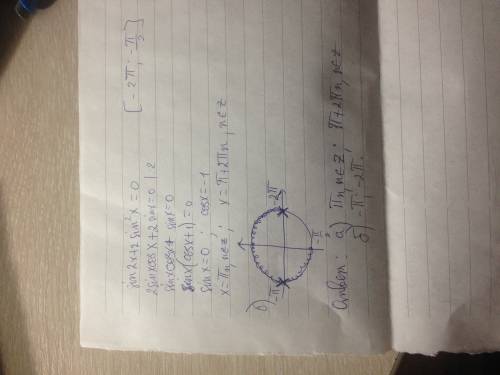 sin2x+2 sin²x=0 [-2π; -π/2]
2sinxcosx+2 sinx=0 | 2
sinxcosx+ sinx=0
sinx(cosx+1)=0
sinx=0 ; cosx=-1
x=πn, n∈Z ; x=π+2πn, n∈Z
б)
-π -2π
-π/2
Ответ: а) πn, n∈Z ; π+2πn, n∈Z
б) -π; -2π.